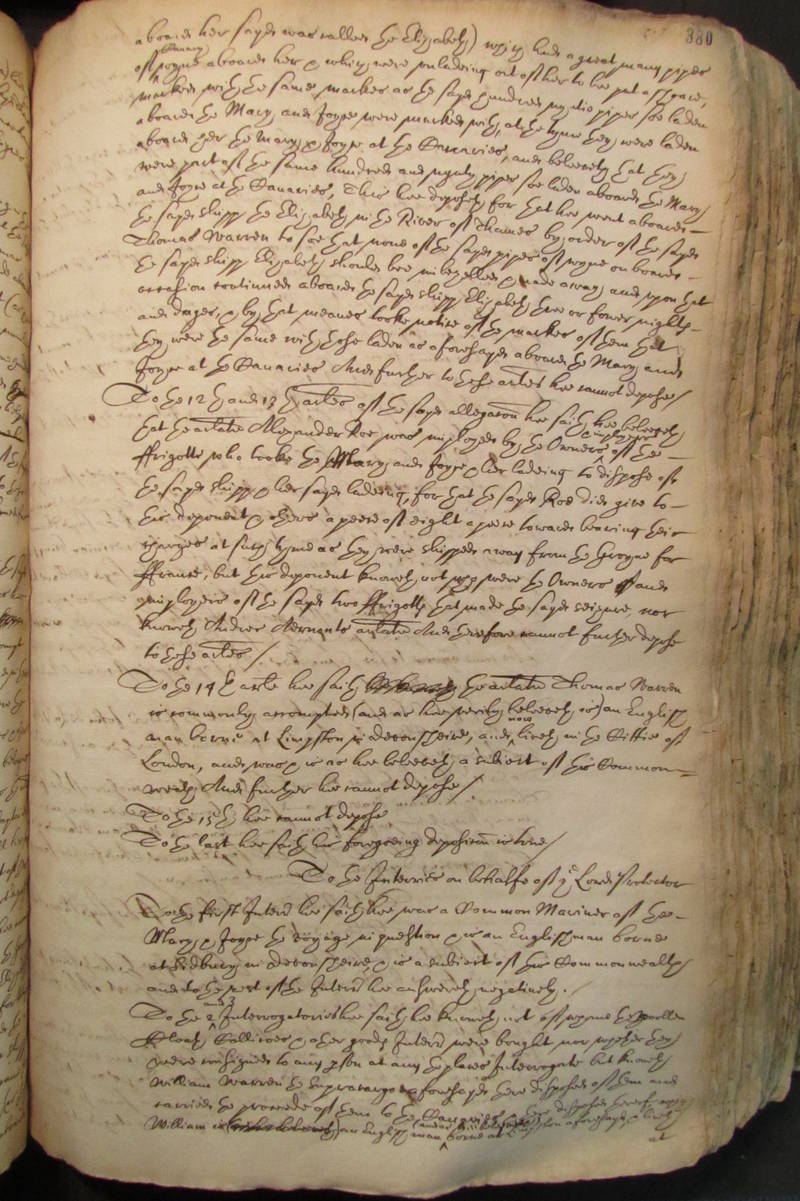 380
aboard her (apes was called the Elizabeth) which had a great many pipes
of Canary wyne aboard her & which were unlading out of her to bee put ashoare,
marked with the same markes as the sayd hundred and pipes soe laden
aboard the Mary and Joyce were marked with, at the tyme they were laden
aboard her the Mary & Joyce at the Canaries, and beleeveth that they
were part of the same hundred and eighty pipes soe laden aboard the Mary
and Joyce at the Canaries, This hee deposeth for that hee went aboard
the sayd shipp the Elizabeth in the River of Thames by order of the sayd
Thomas Warren to see that none of the sayd pipes of wyne on board
the sayd shipp Elizabeth should bee imbezelled & made away and upon that
occasion continued aboard the sayd shipp Elizabeth three or fower nights
and dayes, & by that meanes tooke notice of the markes of them that
they were the same with those laden as aforesayd aboard the Mary and
Joyce at the Canaries And further to these articles hee cannot depose/
To the 12th and 13th articles of the sayd allegation hee saith hee beleeveth
that the articulate Alexander Roe was imployed by the Owners & imployers of the
ffrigotts who tooke the Mary and Joyce & her ladeing to dispose of
the sayd shipp & her sayd ladeing, for that the sayd Roe did give to
this deponent & others a peece of eight a peece towards bearing their
charges at such tyme as they were shipped away from the Groyne for
ffrance, but this deponent knoweth not who were the Owners and
imployers of the sayd two ffrigotts that made the sayd seizure, nor
knoweth Andrew articulate And therefore cannot further depose
to these articles/
To the 14th article hee saith the articulate Thomas Warren
is commonly accompted (and as hee verily beleeveth is) an English
man borne at Kingston in devonsheire, and now liveth in the Cittie of
London, and was & is as hee beleeveth a subiect of this Common=
wealth And further hee cannot depose/
To the 15th hee cannot depose
To the last hee saith his foregoeing deposition is true/
To the Interries on behalfe of ye Lord Protector
To the first Interrie hee saith hee was a Common Mariner of the
Mary & Joyce the voyage in question & is an Englishman borne
at in devonsheire & is a subiect of this Commonwealth
and to the rest of the Interrie hee answereth negatively.
To the 2 and 3 Interrogatories hee saith hee knoweth not of whome the woollen
Cloath Callicoes & other goods Interrie were bought nor whether they
were consigned to any person at any the places Interrogate but knoweth
William Warren the Supracargoe aforesayd there disposed of them and
carried the proceede of them to the Canaries & there disposed thereof which
William is an English man borne at Kingston aforesayd & liveth
at